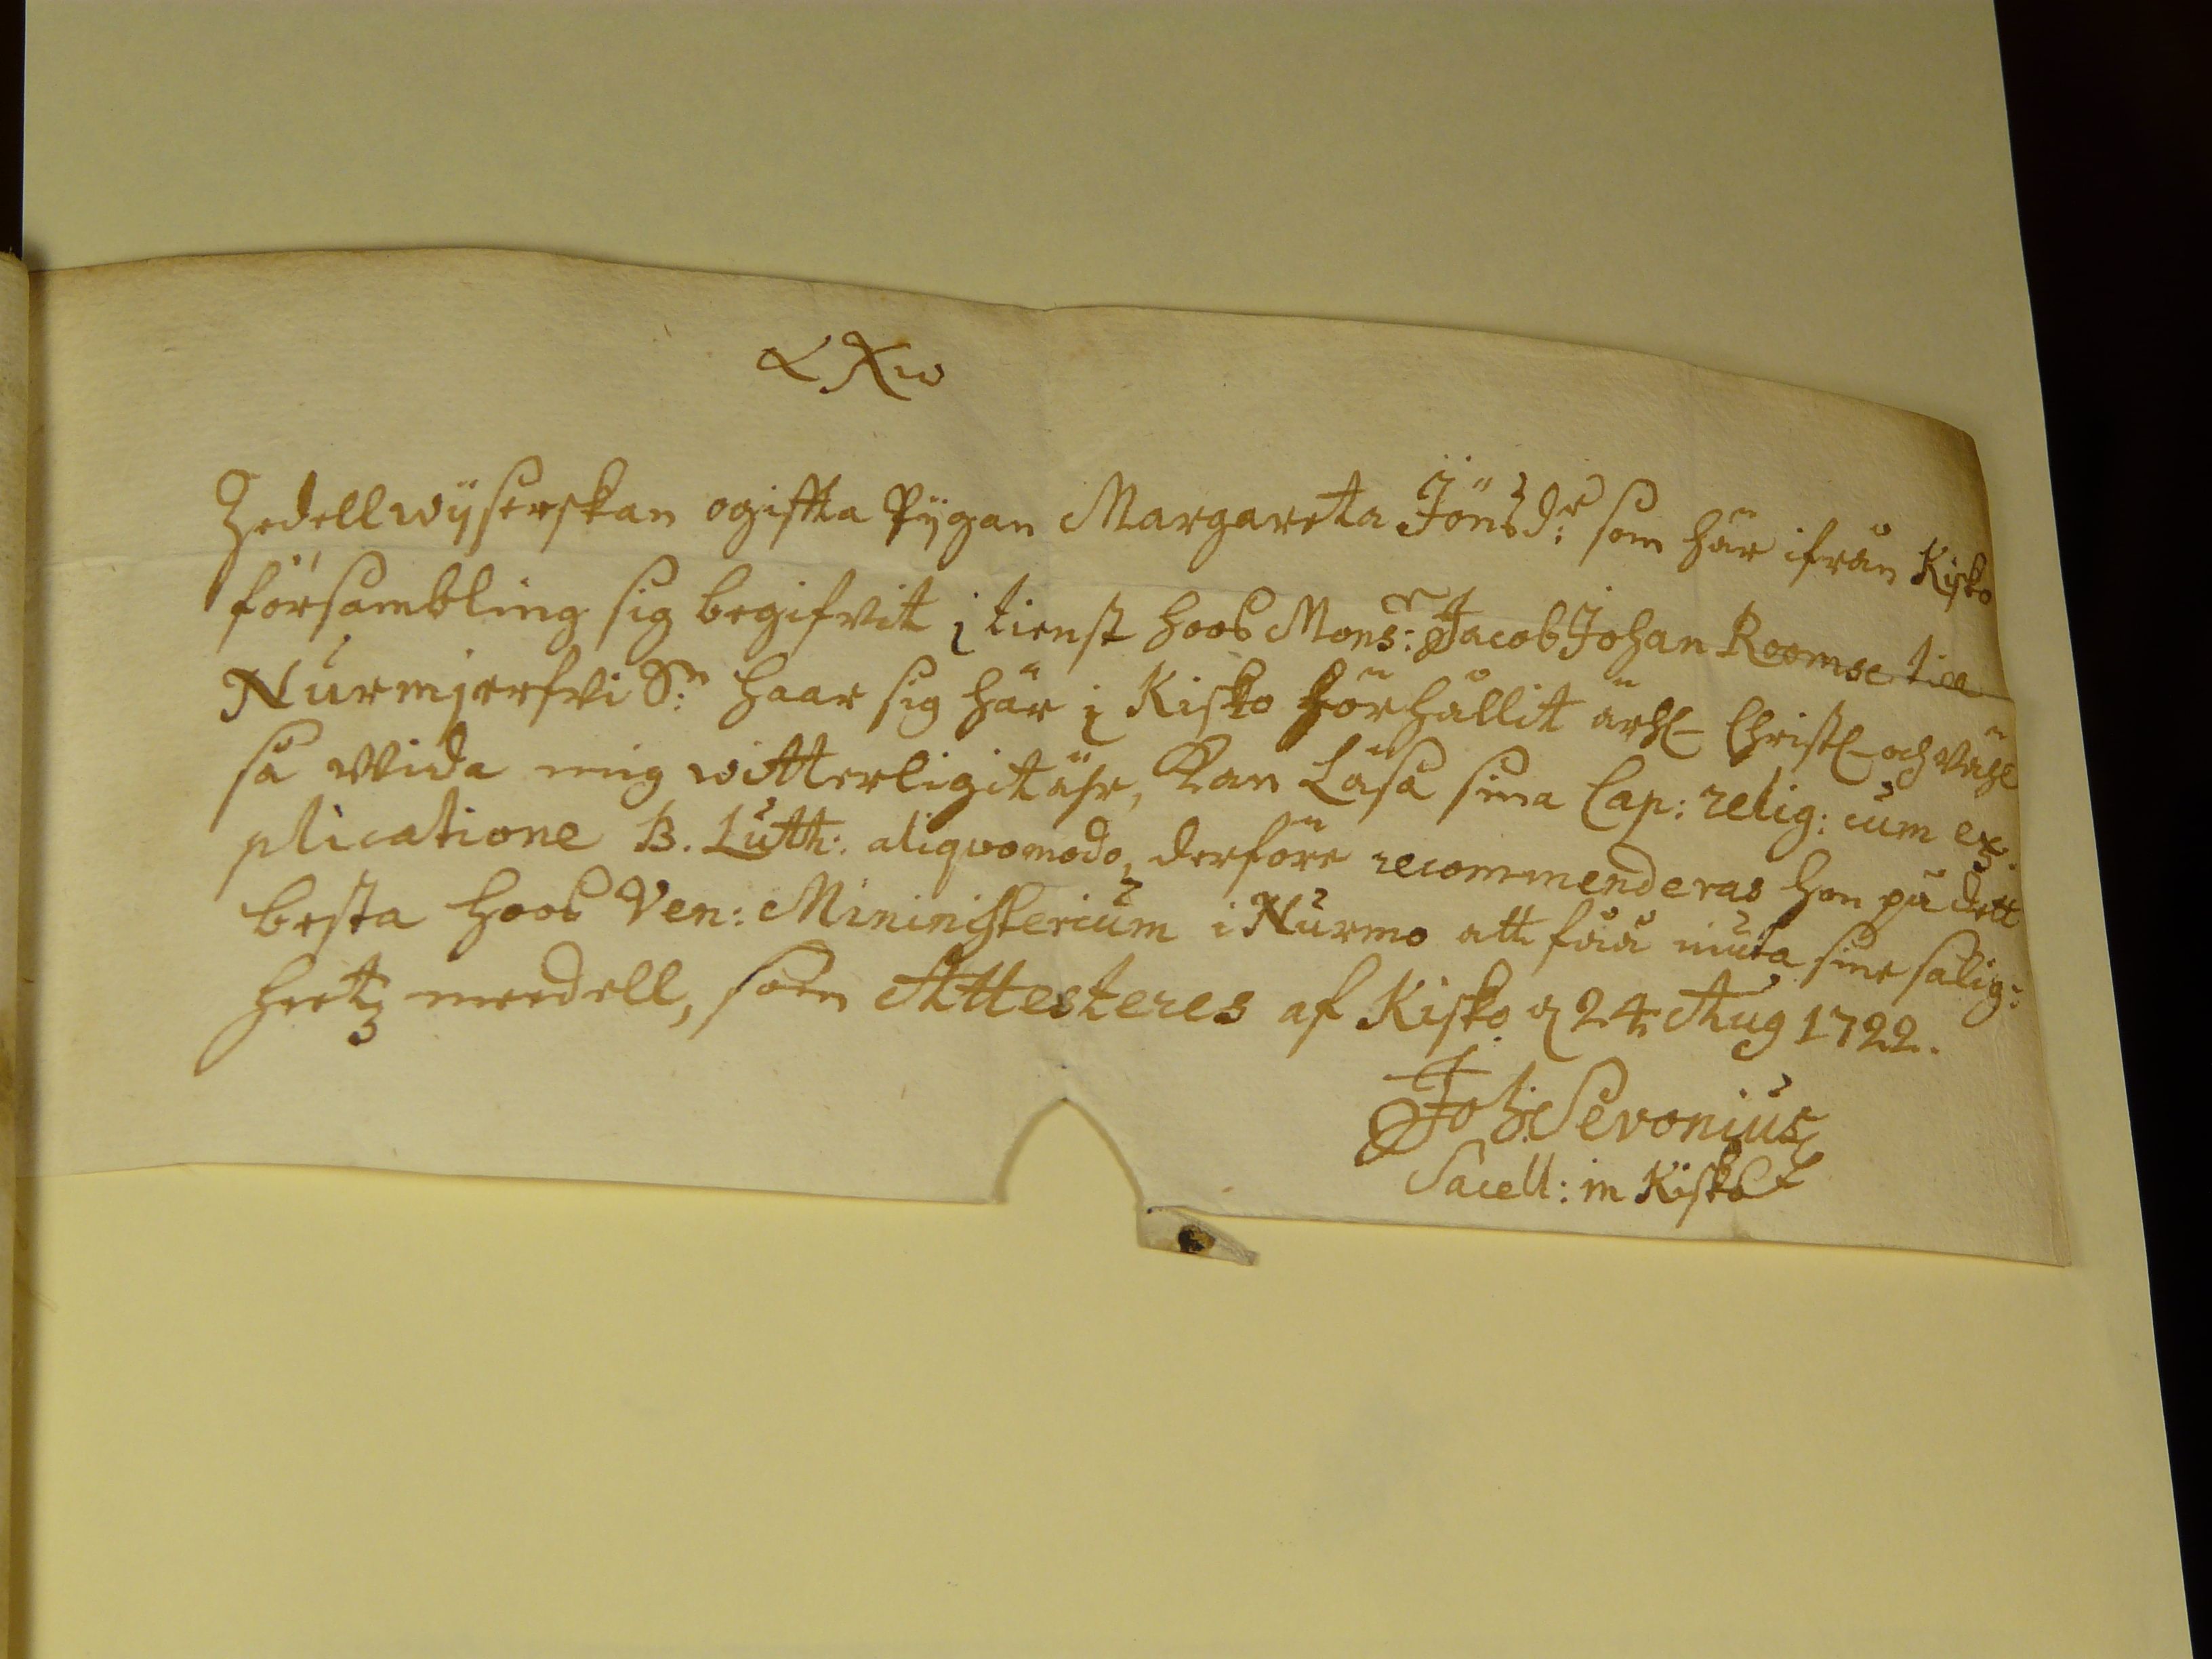 α X ω
Zedellwÿserskan ogiffta Pÿgan Margareta Jönsd:r som här ifrån Kisko
försambling sig begifvit i tienst hoos Mons:r Jacob Johan Roomse till
Nurmjerfvi S:n haar sig här i Kisko förhållit ährl. Christl. och vähl
så vvida mig witterligit ähr, Kan Läsa sina Cap: relig: cum ex-
plicatione B. Luth: aliqvomodo, derföre recommenderas hon på dett
besta hoos Ven: Mininisterium i Nurmo att fåå niuta sine salig:
heetz meedell, som Attesteres af Kisko d 24 Aug 1722.
Joh: Sevonius
Sacell: in Kisko